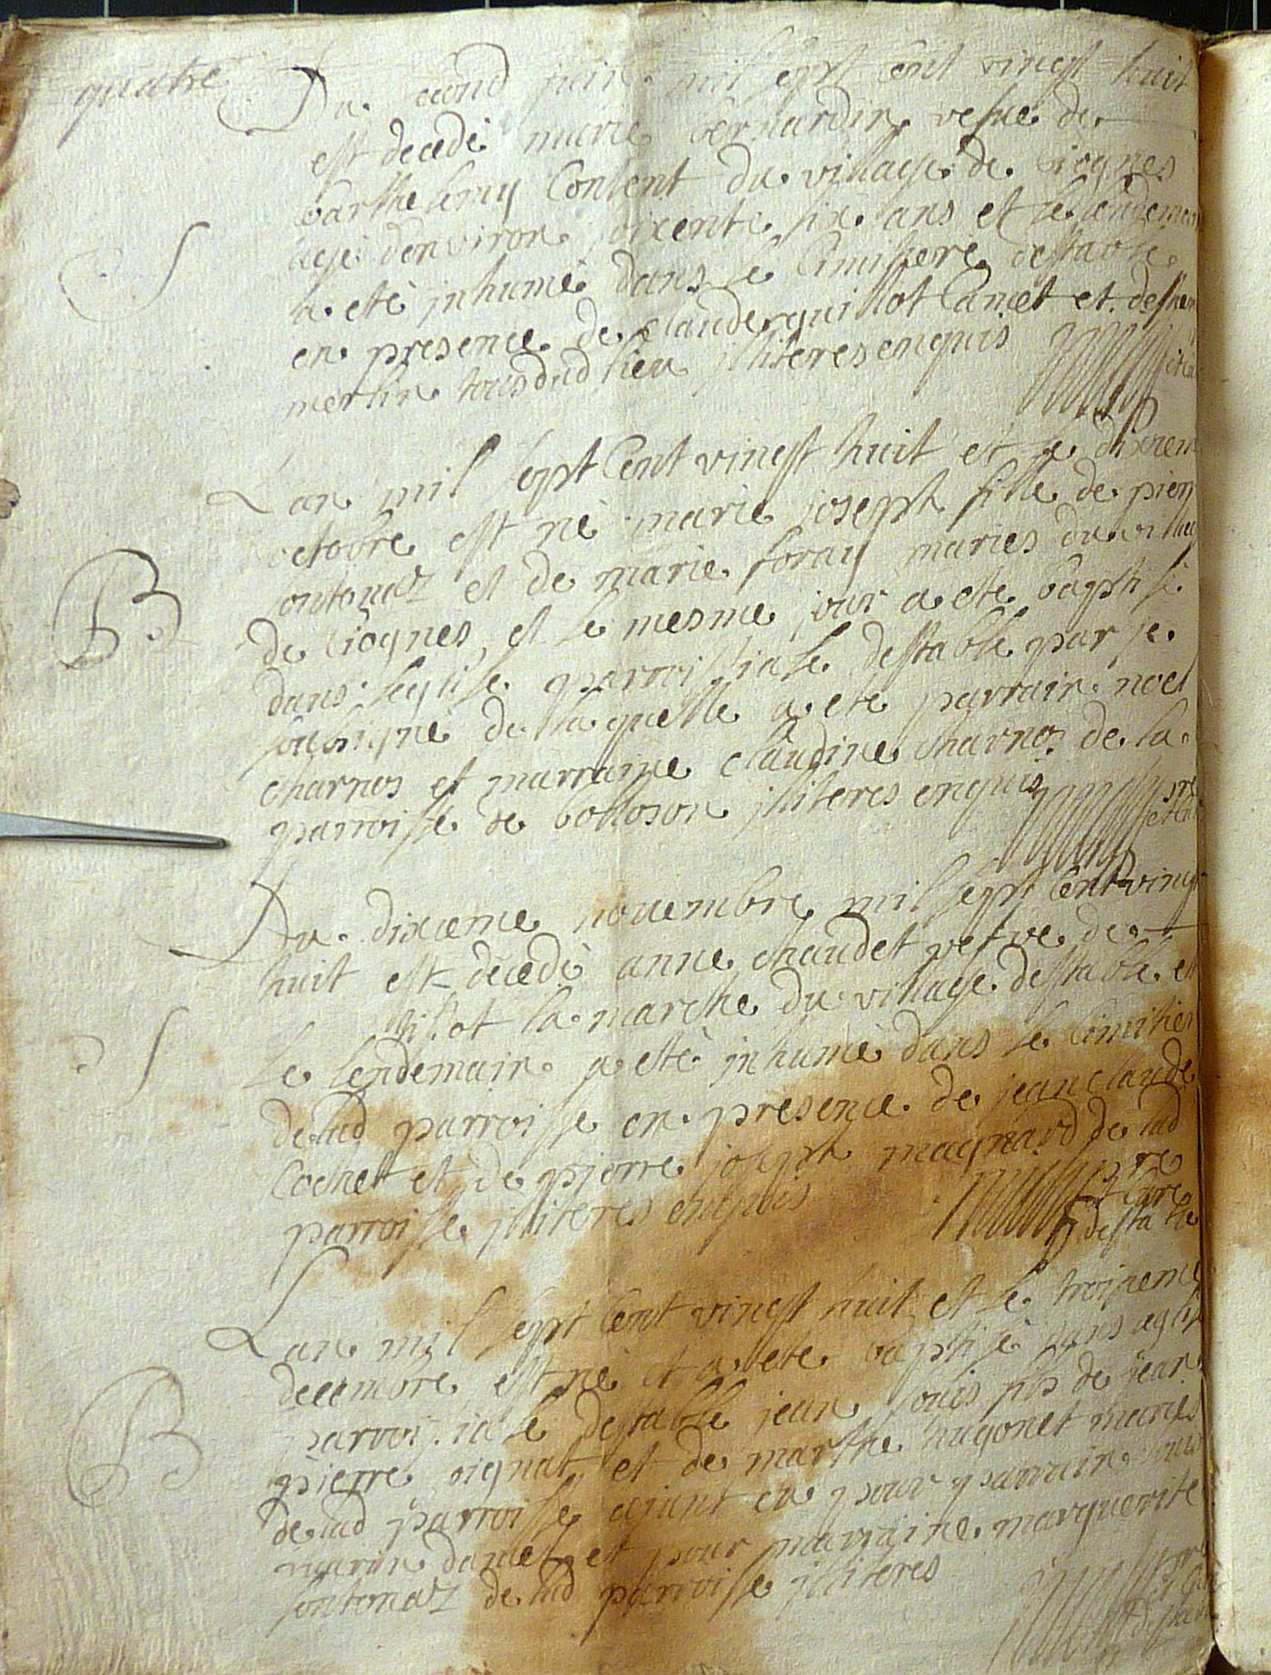 quatre
Du second juin mil sept cent vingt huit
est decedé marie bernardin vefue de
barthelemy Content du village de Ciognes
agé denviron soixente six ans et le lendemain
a eté jnhumé dans le Cimitiere destable
en presence de claude guillot Canet et de
S
merlin tous dud lieu jlliteres enquis
Lan mil sept Cent vingt huit et le dixiem
octobre est né marie joseph fille de pierr
sontonaz et de marie foray mariés du villag
B
de Ciognes, et le mesme jour a eté baptisé
dans leglise parroissiale destable par je
soussigné de laquelle a eté parrain noel
charnos et marraine claudine charnos de la
parroisse de bolloson jlliteres enquis pre
Du dixieme nouembre mil sept Cent vingt
huit est decedé anne chaudet vefve de
la marche du village destable et
S
le lendemain a eté jnhumé dans le Cimitier
de lad parroisse en presence de jean claude
Cochet et de pierre joseph magnard de lad
parroisse jlliteres enquis pre
Cure
desta ble
Lan mil sept Cent vingt huit et le troisieme
decembre est né et a eté baptisé dans leglis
parroissiale destable jean louis fils de jean
B
pierre signat et de marthe hugonet mariés
de lad parroisse aiant eu pour parrain
danet et pour marraine marguerite
sontonaz de lad parroisse jlliteres